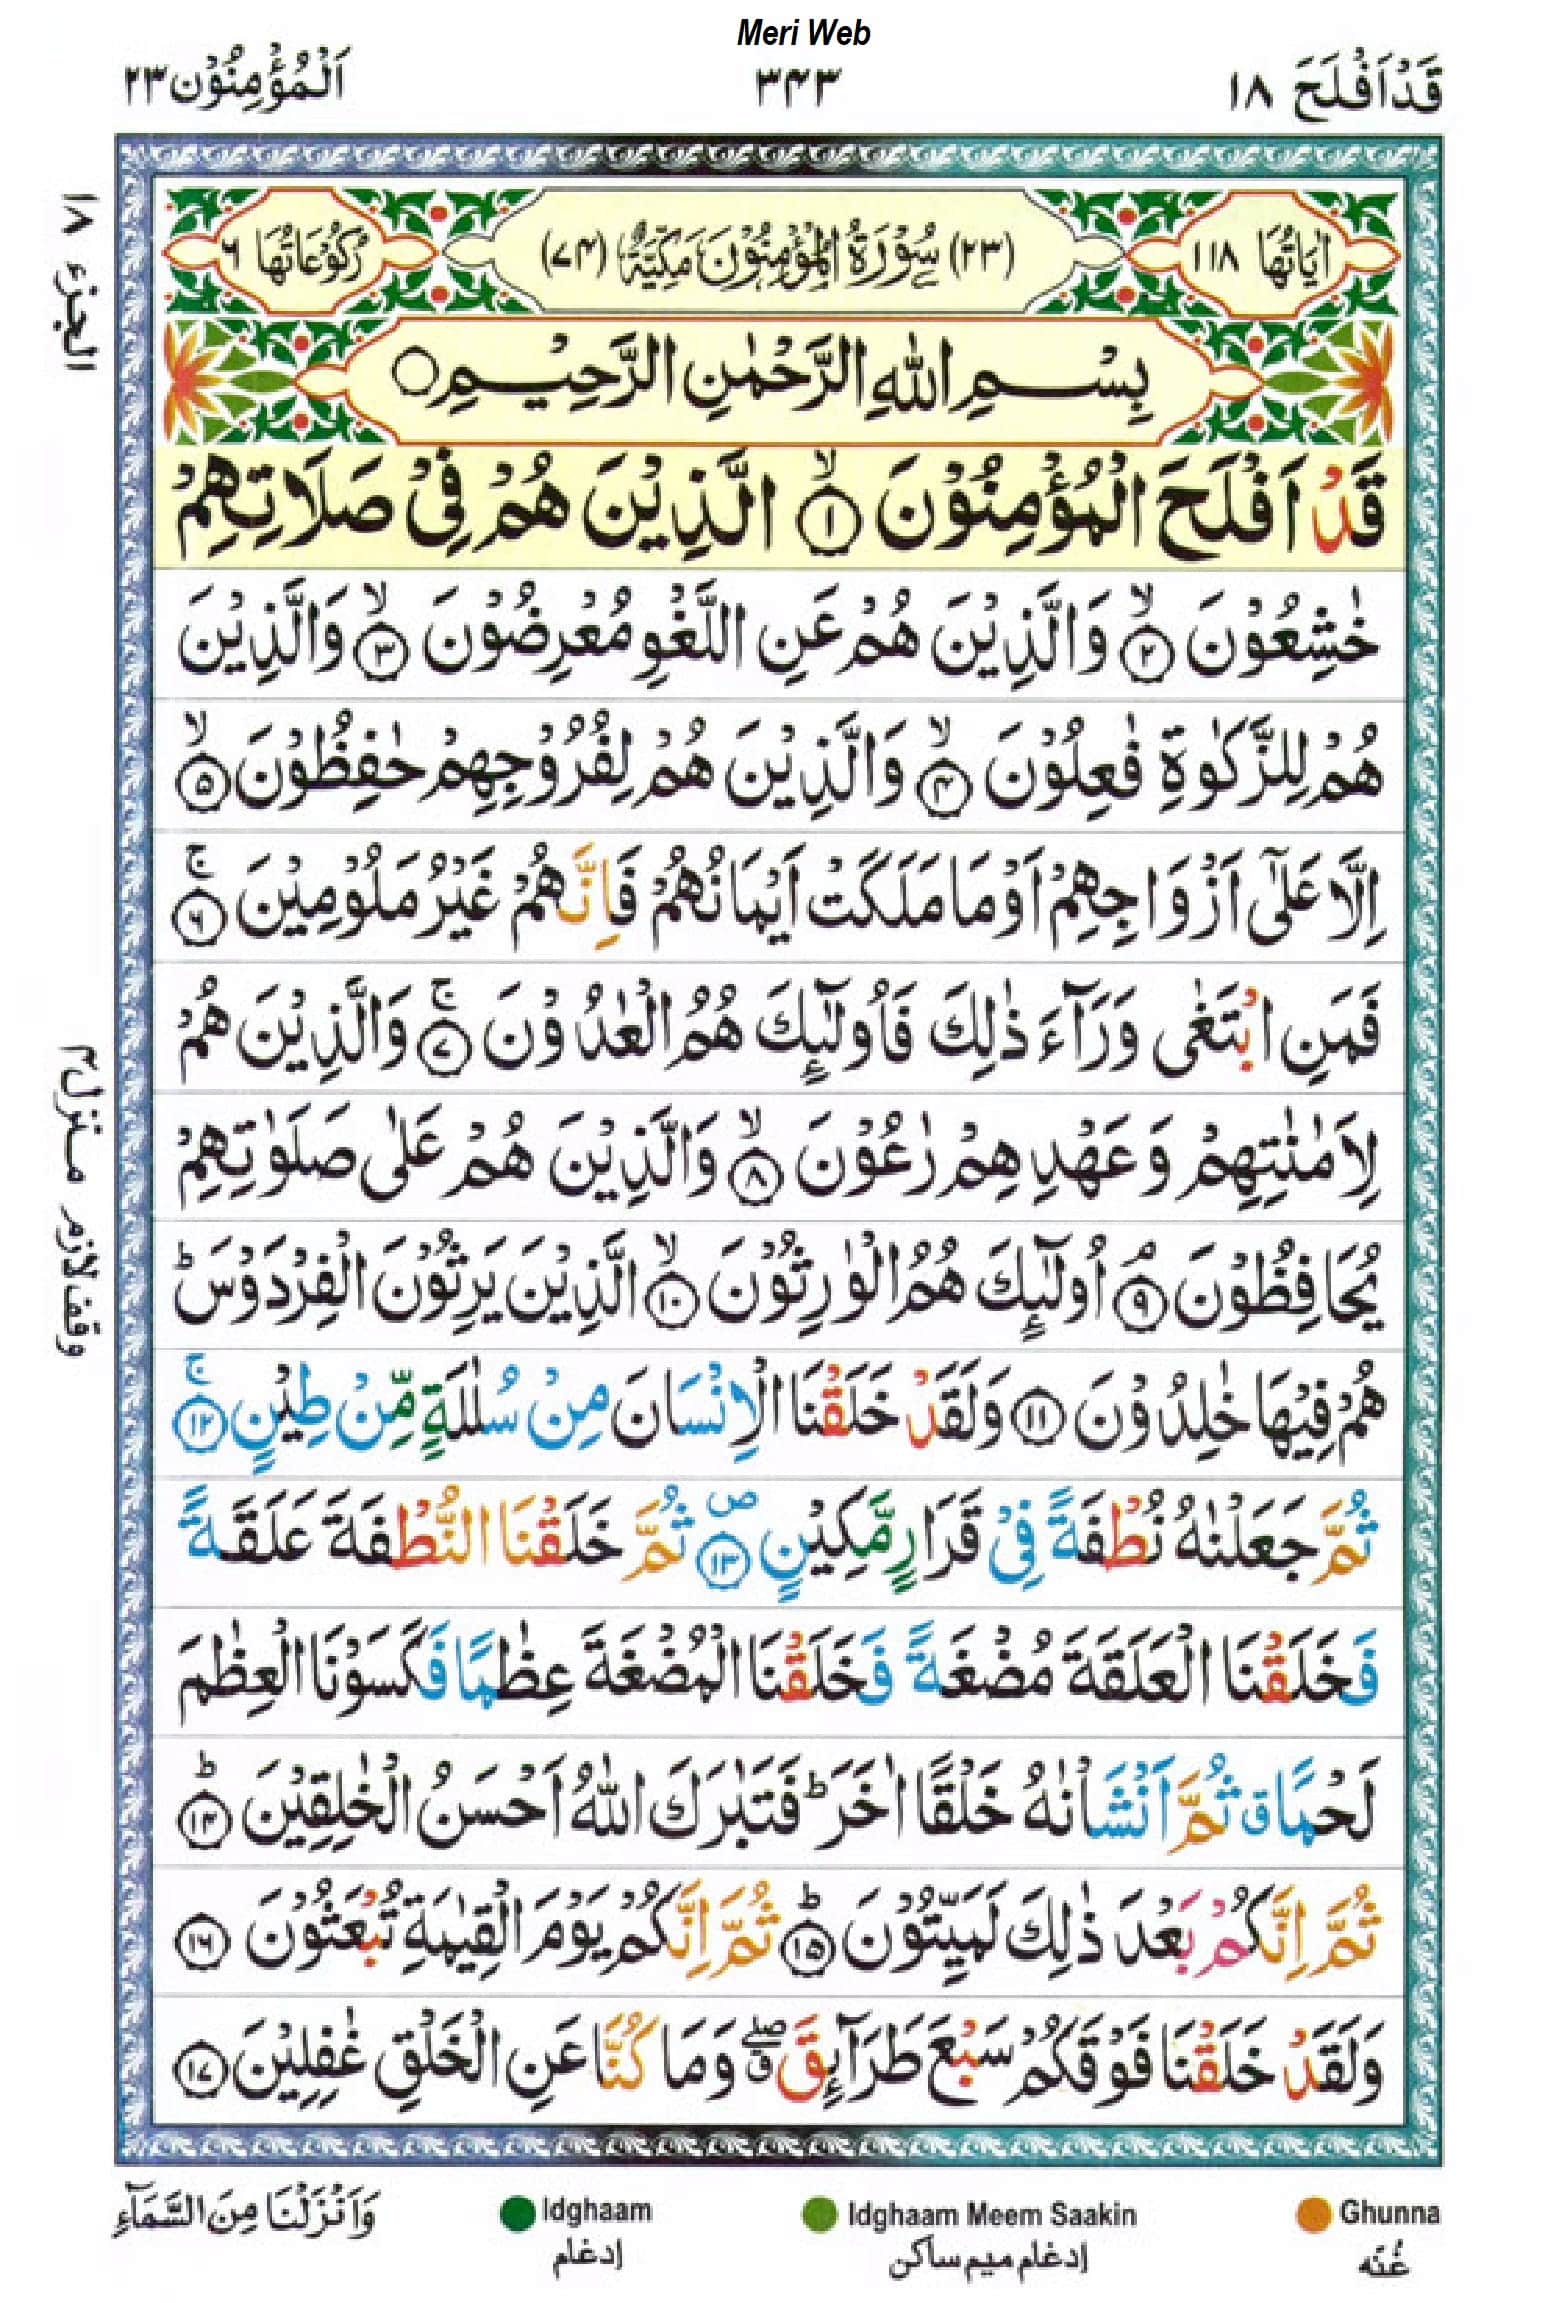 Meri Web
قَدْ اَفْلَحَ ۱۸
۳۴۳
اَلْمُؤْمِنُوْن ۲۳
اٰیَاتُهَا ۱۱۸
(۲۳) سُوْرَةُ الْمُؤْمِنُوْنَ مَكِّیَّةٌ (۷۴)
رُكُوْعَاتُهَا ۶
بِسْمِ اللّٰهِ الرَّحْمٰنِ الرَّحِیْمِ ○
قَدْ اَفْلَحَ الْمُؤْمِنُوْنَ ۙ﴿۱﴾ الَّذِیْنَ هُمْ فِیْ صَلَاتِهِمْ
خٰشِعُوْنَ ۙ﴿۲﴾ وَالَّذِیْنَ هُمْ عَنِ اللَّغْوِ مُعْرِضُوْنَ ۙ﴿۳﴾ وَالَّذِیْنَ
هُمْ لِلزَّكٰوةِ فٰعِلُوْنَ ۙ﴿۴﴾ وَالَّذِیْنَ هُمْ لِفُرُوْجِهِمْ حٰفِظُوْنَ ۙ﴿۵﴾
اِلَّا عَلٰۤی اَزْوَاجِهِمْ اَوْ مَا مَلَكَتْ اَیْمَانُهُمْ فَاِنَّهُمْ غَیْرُ مَلُوْمِیْنَ ۚ﴿۶﴾
فَمَنِ ابْتَغٰی وَرَآءَ ذٰلِكَ فَاُولٰٓئِكَ هُمُ الْعٰدُوْنَ ۚ﴿۷﴾ وَالَّذِیْنَ هُمْ
لِاَمٰنٰتِهِمْ وَعَهْدِهِمْ رٰعُوْنَ ۙ﴿۸﴾ وَالَّذِیْنَ هُمْ عَلٰی صَلَوٰتِهِمْ
یُحَافِظُوْنَ ۘ﴿۹﴾ اُولٰٓئِكَ هُمُ الْوٰرِثُوْنَ ۙ﴿۱۰﴾ الَّذِیْنَ یَرِثُوْنَ الْفِرْدَوْسَ ؕ
هُمْ فِیْهَا خٰلِدُوْنَ ﴿۱۱﴾ وَلَقَدْ خَلَقْنَا الْاِنْسَانَ مِنْ سُلٰلَةٍ مِّنْ طِیْنٍ ۚ﴿۱۲﴾
ثُمَّ جَعَلْنٰهُ نُطْفَةً فِیْ قَرَارٍ مَّكِیْنٍ ۪﴿۱۳﴾ ثُمَّ خَلَقْنَا النُّطْفَةَ عَلَقَةً
فَخَلَقْنَا الْعَلَقَةَ مُضْغَةً فَخَلَقْنَا الْمُضْغَةَ عِظٰمًا فَكَسَوْنَا الْعِظٰمَ
لَحْمًا ٭ ثُمَّ اَنْشَاْنٰهُ خَلْقًا اٰخَرَ ؕ فَتَبٰرَكَ اللّٰهُ اَحْسَنُ الْخٰلِقِیْنَ ؕ﴿۱۴﴾
ثُمَّ اِنَّكُمْ بَعْدَ ذٰلِكَ لَمَیِّتُوْنَ ؕ﴿۱۵﴾ ثُمَّ اِنَّكُمْ یَوْمَ الْقِیٰمَةِ تُبْعَثُوْنَ ﴿۱۶﴾
وَلَقَدْ خَلَقْنَا فَوْقَكُمْ سَبْعَ طَرَآئِقَ ٭ۖ وَمَا كُنَّا عَنِ الْخَلْقِ غٰفِلِیْنَ ﴿۱۷﴾
الجزء ۱۸
منزل۴ وقف لازم
Ghunna
غُنّه
Idghaam Meem Saakin
إدغام میم ساکن
Idghaam
إدغام
وَاَنْزَلْنَا مِنَ السَّمَآءِ